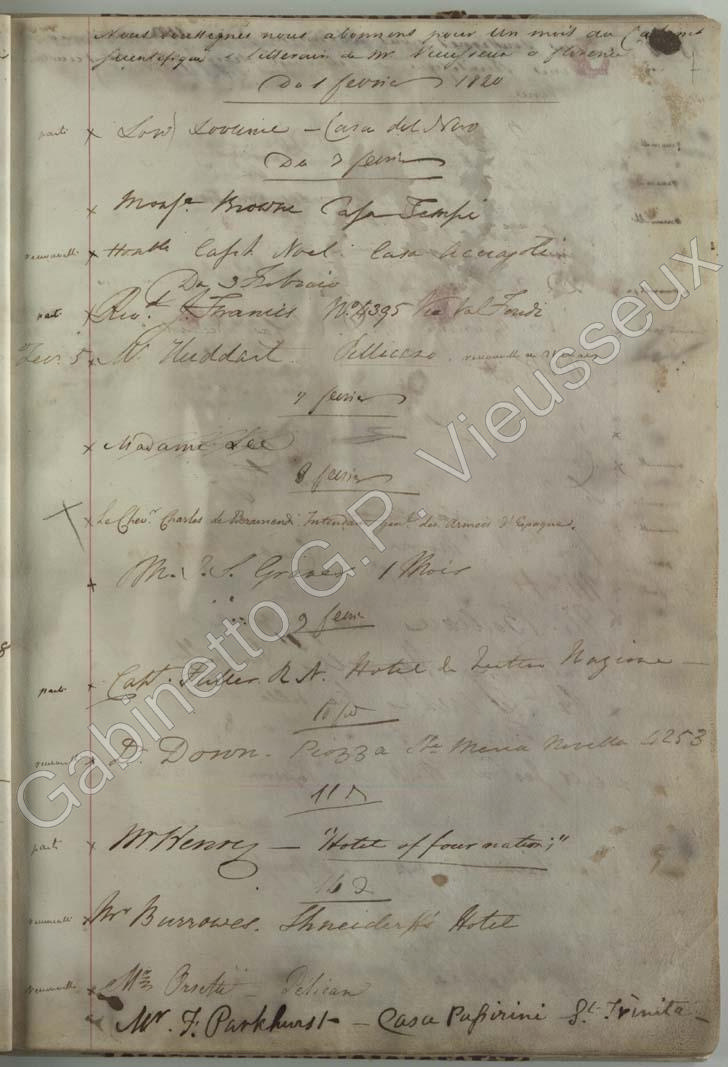 Nous soussignés nous abonnons pour un mois au Cabinet
scientifique & litteraire de Mr Vieusseux à florence
Du 1 fevrier 1820
parti x Lord Lovaine – Casa del Nero
Du 3 fevrier
x Monsr. Browne Casa Tempi
renouvellé x Honble Capt. Noel. Casa Acciajoli
Du 3 Febraio
parti x Revd. Francis No. 4395 Via Val Fondi
5 x Mr Huddart Pellicano. renouvellé
7 fevrier
x Madame Lee
8 fevrier
x Le Chevr. Charles de Beramendi Intendant genl. des Armées d'Espagne.
x Mr. S. Graves 1 Mois
9 fevrier
parti x Capt. Fuller R.N. Hotel de Nazione
10
renouvellé x Dr Down. Piazza Sta Maria Novella 4253
11
parti x Mr Henry – "Hotel of four nations"
14
renouvellé x Mr Burrowes. Shneiderff's Hotel
renouvellé x Orsetti Pelican
x Mr. F. Parkhurst – Casa Passirini St. Trinita
Gabinetto G.P. Vieusseux